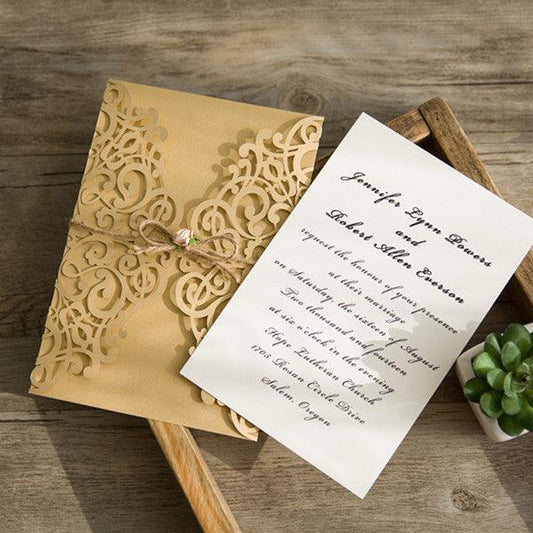 Jennifer Lynn Powers
and
Robert Allen Everson
request the honour of your presence
at their marriage
on Saturday, the sixteen of August
Two thousand and fourteen
at six o'clock in the evening
Hope Lutheran Church
1705 Rosan Circle Drive
Salem, Oregon